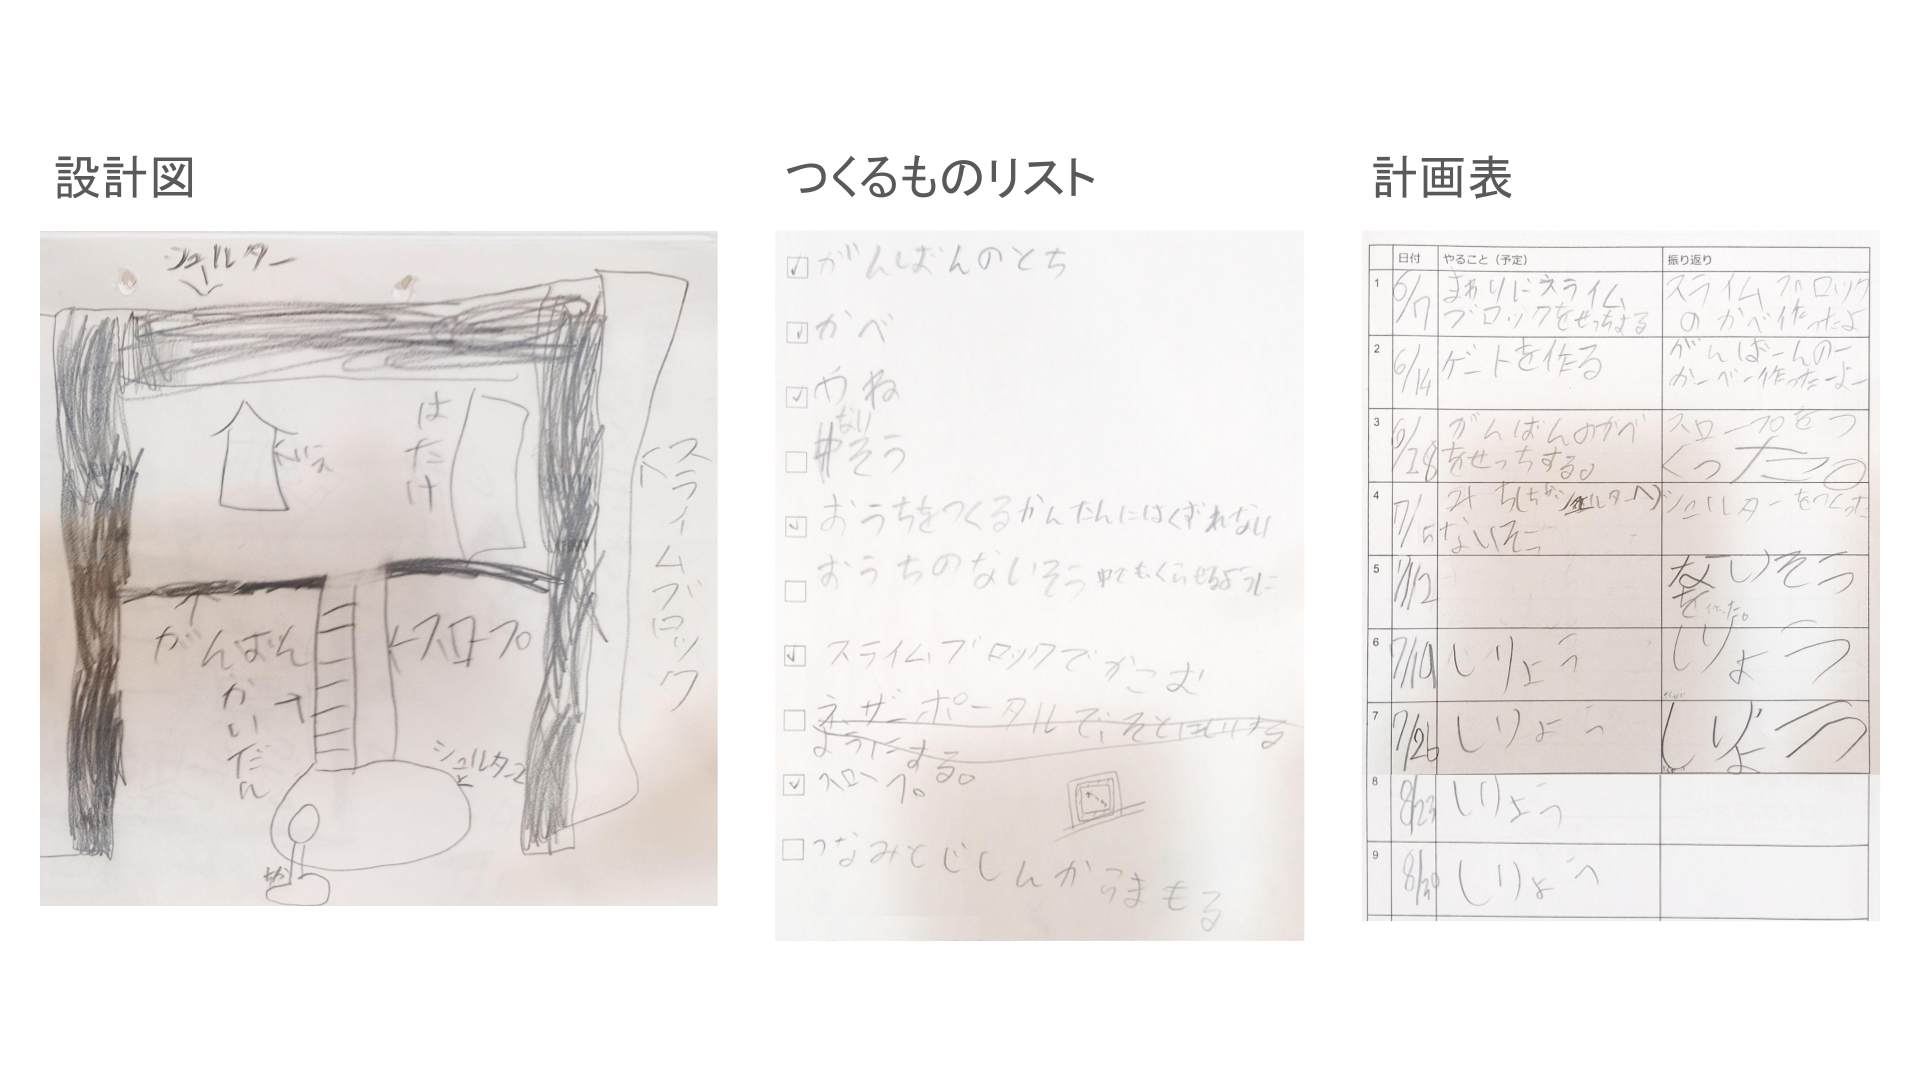 設計図
シェルター
はたけ
スライムブロック
がんばん
かいだん
スロープ
シェルター2
つくるものリスト
がんばんのとち
かべ
やね
ない
そう
おうちをつくるかんたんにはくずれない
おうちのないそう中でもくらせるように
スライムブロックでかこむ
ネザーポータルで、そとにいける
ようにする。
スロープ。
つなみとじしんからまもる
計画表
日付 やること（予定） 振り返り
1 6/7 まわりにスライム
ブロックをせっちする
スライムブロック
のかべ作ったよ
2 6/14 ゲートを作る
がんばーんのー
かーべー作ったーよー
3 6/28 がんばんのかべ
をせっちする。
スロープをつ
くった。
4 7/5
ないそう
シェルターをつくった
5 7/12
ないそう
を作った。
6 7/19 しりょう しりょう
7 7/26 しりょう しりょう
8 8/23 しりょう
9 8/30 しりょう